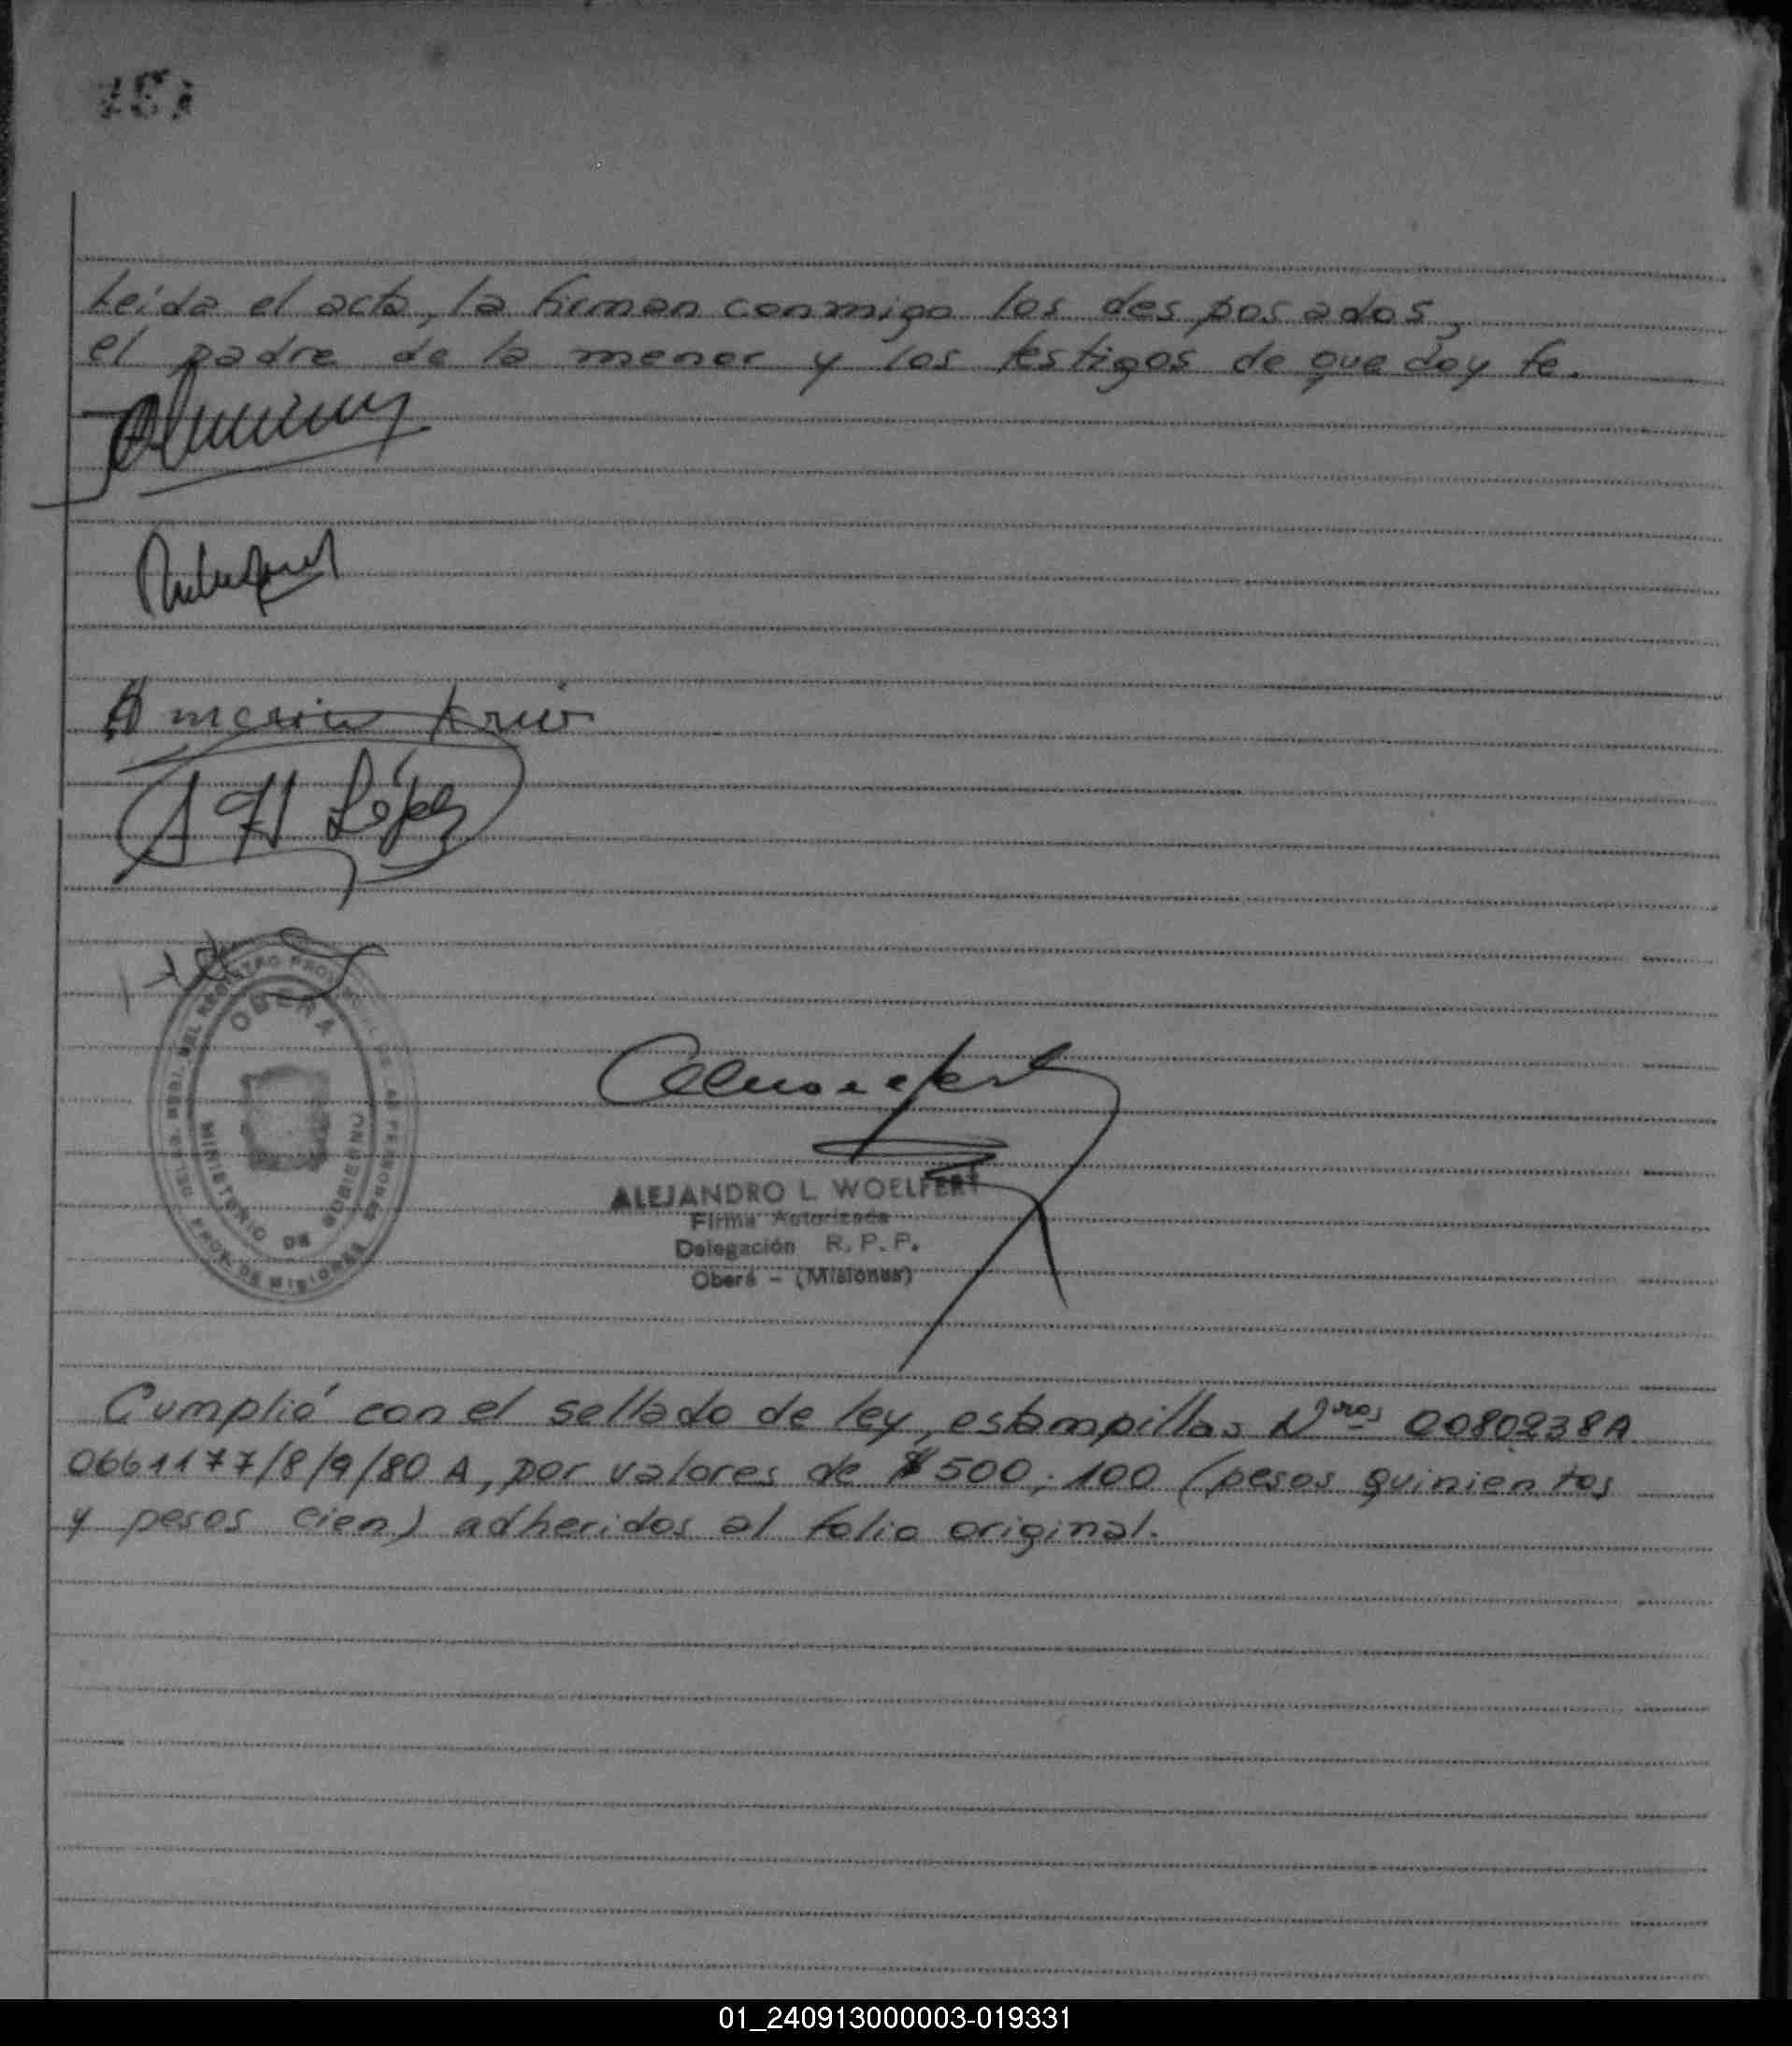 Leída el acta, la firman conmigo los desposados,
el padre de la menor y los testigos de que doy fe.
López
OBERA
MINISTERIO DE GOBIERNO
PROV. DE MISIONES
ALEJANDRO L. WOELFERT
Firma Autorizada
Delegación R. P. P.
Oberá - (Misiones)
Cumplió con el sellado de ley, estampillas Nros 0080238A
0661177/8/9/80 A, por valores de $500; 100 (pesos quinientos
y pesos cien) adheridos al folio original.
01_240913000003-019331